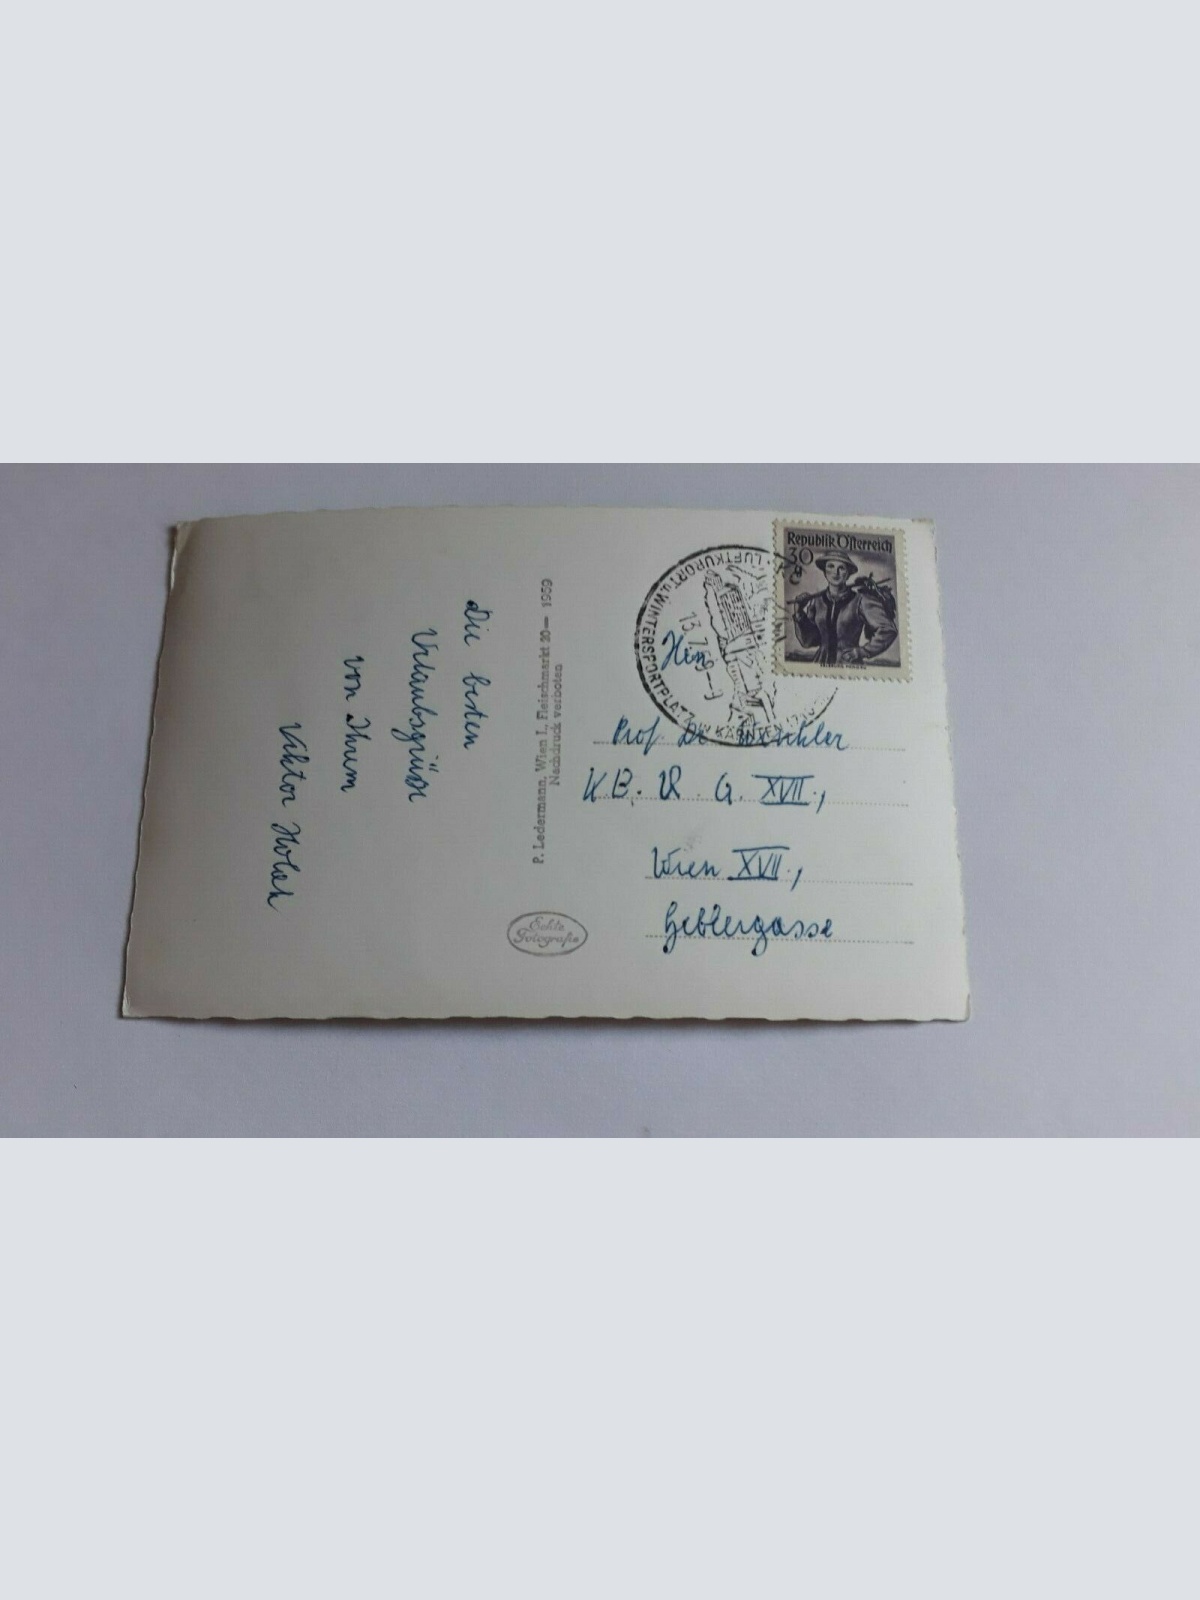 Die besten
Urlaubsgrüße
von Ihrem
Viktor Holah
P. Ledermann, Wien I., Fleischmarkt 20— 1959
Nachdruck verboten
Echte
Fotografie
Republik Österreich
30
g
LUFTKURORT u. WINTERSPORTPLATZ
KÄRNTEN
13.7.59–9
Herrn
Prof. Dr.
K. B. V. G. XVII.,
Wien XVII.,
Geblergasse